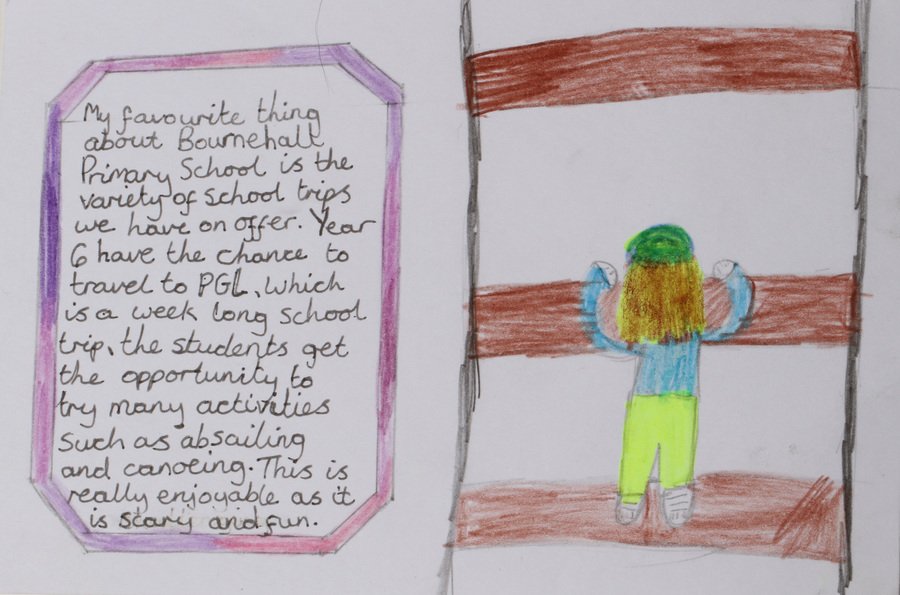 My favourite thing
about Bournehall
Primary School is the
variety of school trips
we have on offer. Year
6 have the chance to
travel to PGL, which
is a week long school
trip, the students get
the opportunity to
try many activities
such as absailing
and canoeing. This is
really enjoyable as it
is scary and fun.